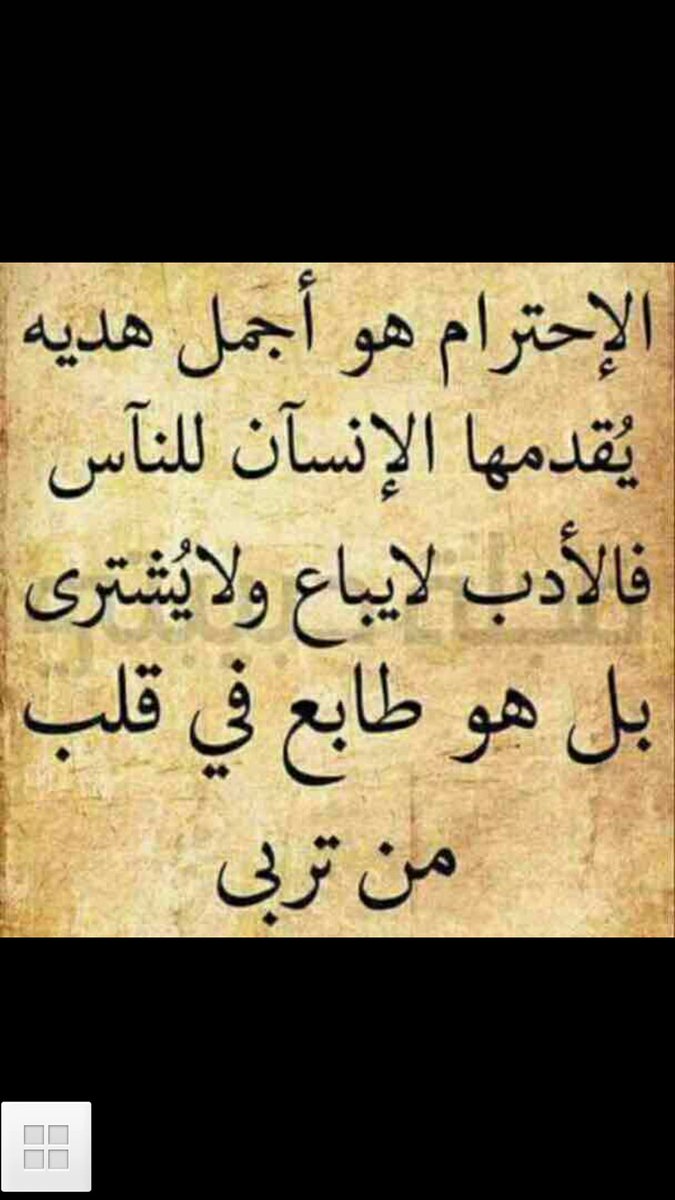 الإحترام هو أجمل هديه
يُقدمها الإنسآن للنآس
فالأدب لايباع ولايُشترى
بل هو طابع في قلب
من تربى